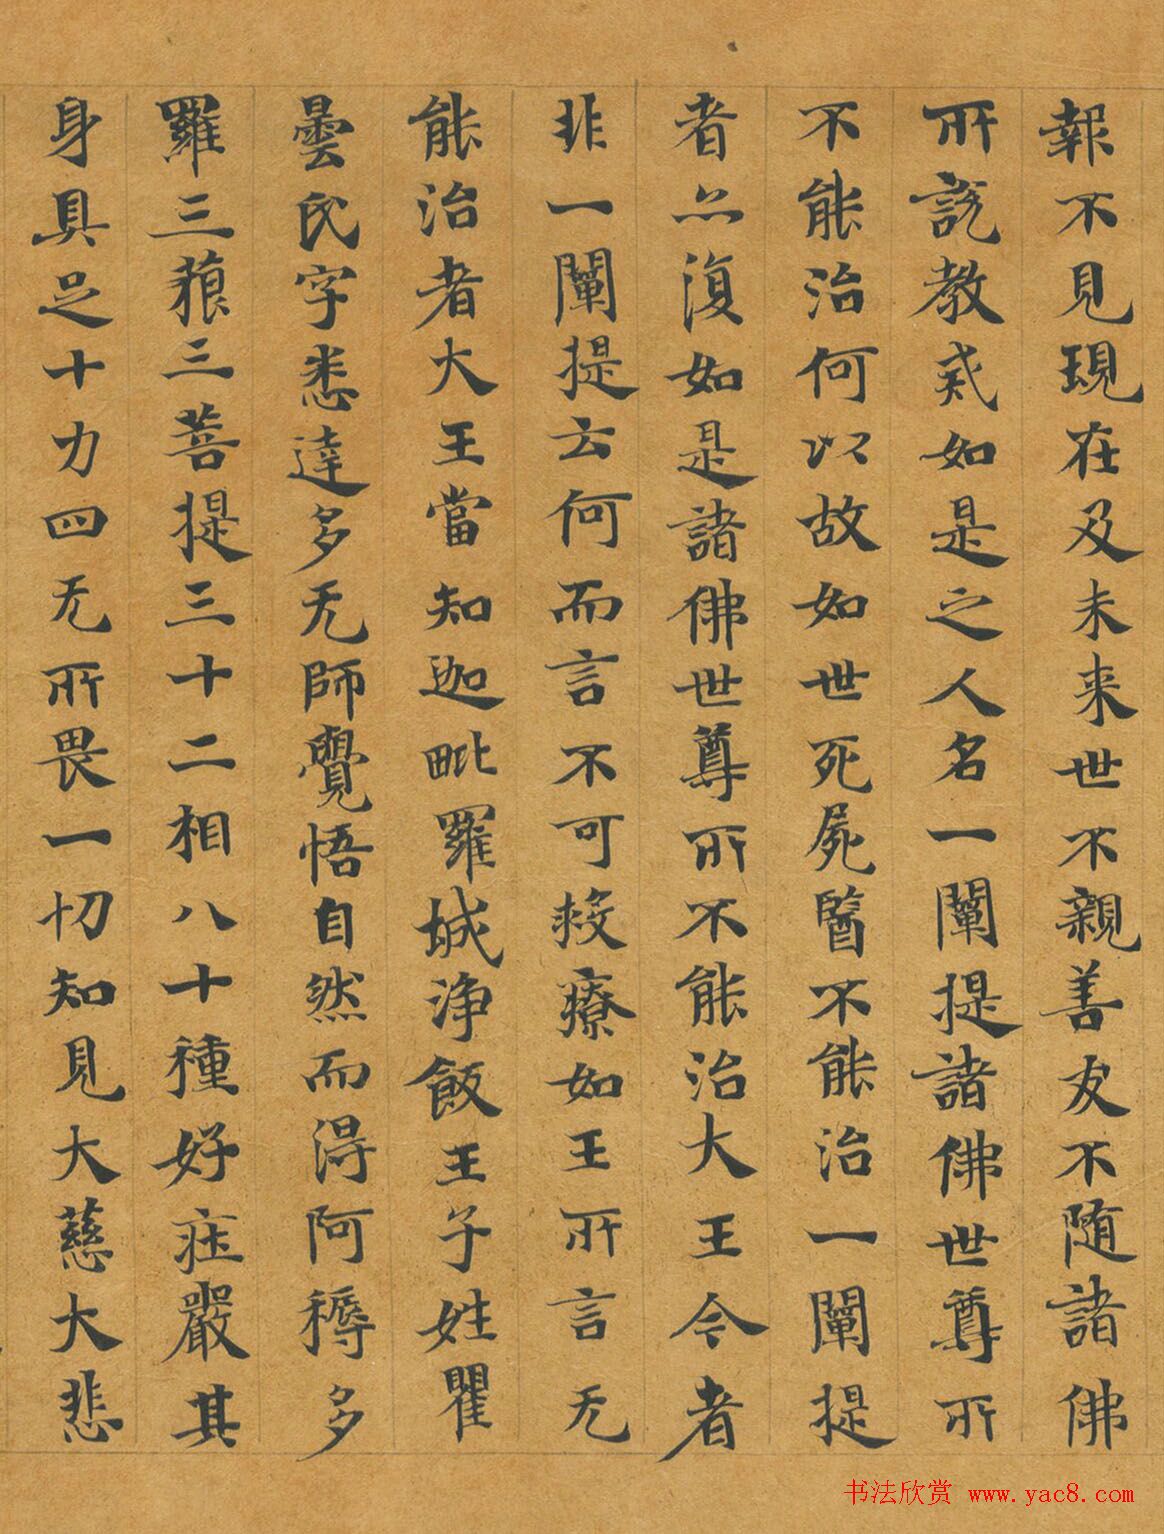 報不見現在及未来世不親善友不随諸佛
所說教戒如是之人名一闡提諸佛世尊所
不能治何以故如世死屍醫不能治一闡提
者亦復如是諸佛世尊所不能治大王今者
非一闡提云何而言不可救療如王所言无
能治者大王當知迦毗羅城淨飯王子姓瞿
曇氏字悉達多无師覺悟自然而得阿耨多
羅三藐三菩提三十二相八十種好庄嚴其
身具足十力四无所畏一切知見大慈大悲
书法欣赏 www.yac8.com